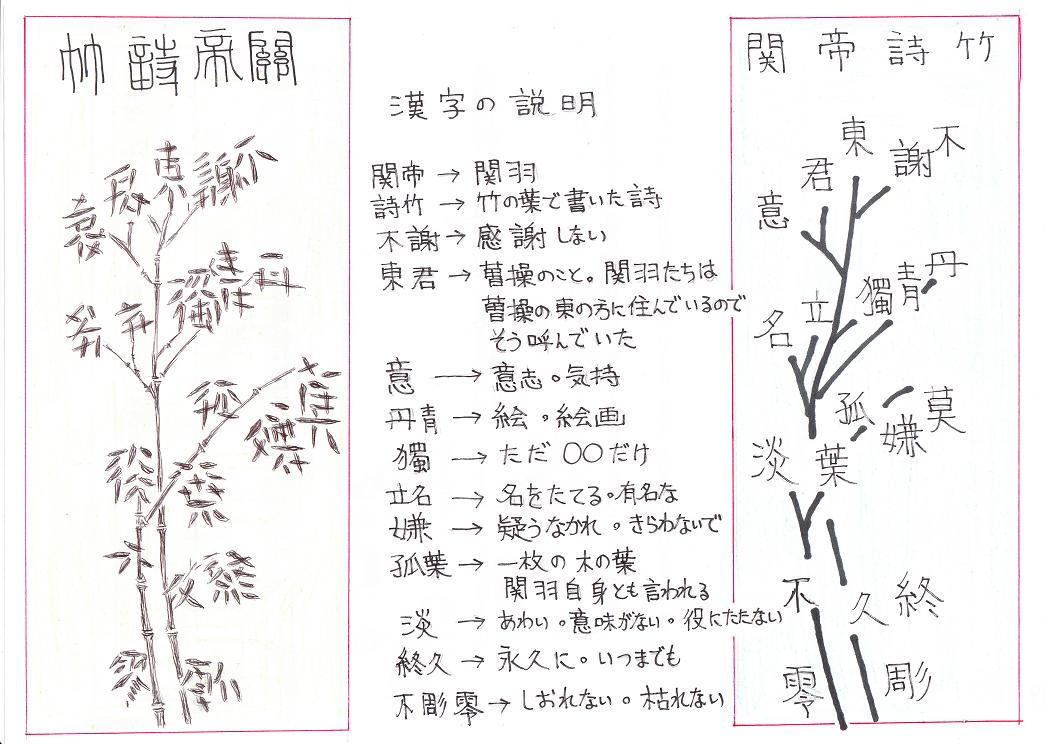 關帝詩竹
不謝東君意
丹青獨立名
莫嫌孤葉淡
終久不彫零
漢字の説明
関帝→関羽
詩竹→竹の葉で書いた詩
不謝→感謝しない
東君→曹操のこと。関羽たちは
曹操の東の方に住んでいるので
そう呼んでいた
意→意志。気持
丹青→絵。絵画
獨→ただ〇〇だけ
立名→名をたてる。有名な
嫌→疑うなかれ。きらわないで
孤葉→一枚の木の葉
関羽自身とも言われる
淡→あわい。意味がない。役にたたない
終久→永久に。いつまでも
不彫零→しおれない。枯れない
関帝詩竹
不謝東君意
丹青獨立名
莫嫌孤葉淡
終久不彫零